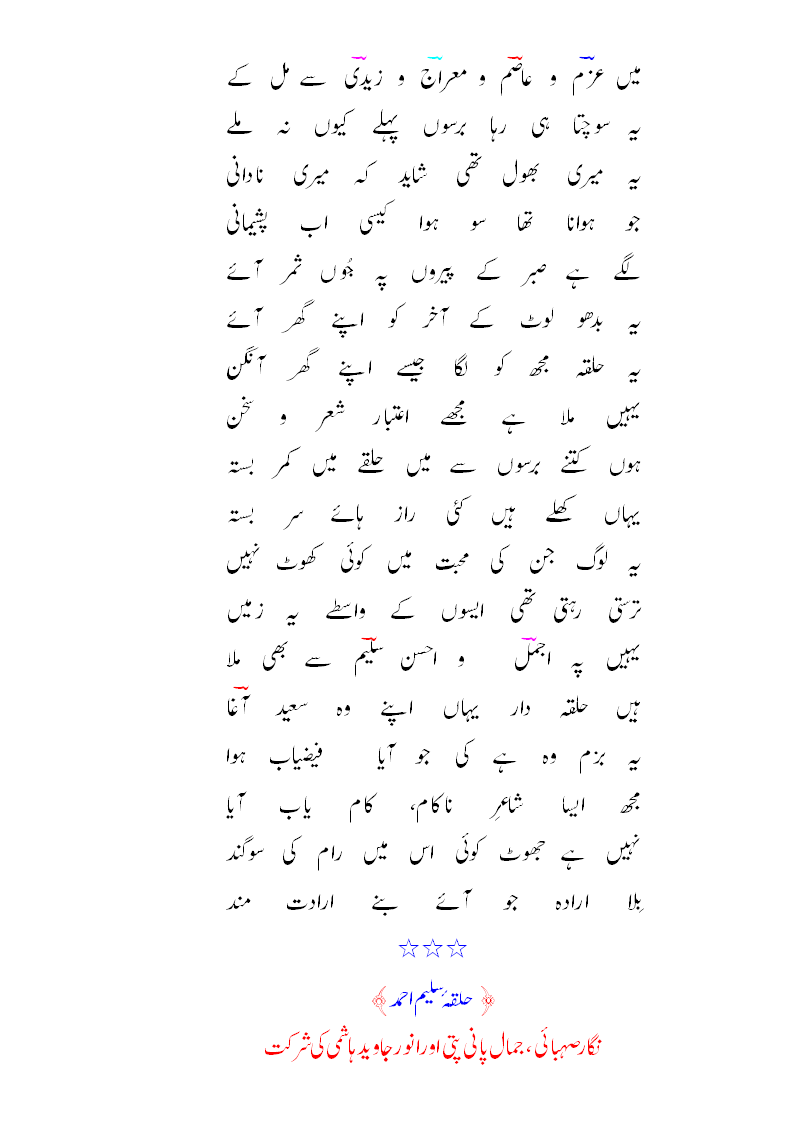 میں عزمؔ و عاصمؔ و معراجؔ و زیدیؔ سے مل کے
یہ سوچتا ہی رہا برسوں پہلے کیوں نہ ملے
یہ میری بھول تھی شاید کہ میری نادانی
جو ہوانا تھا سو ہوا کیسی اب پشیمانی
لگے ہے صبر کے پیروں پہ جُوں ثمر آئے
یہ بدھو لوٹ کے آخر کو اپنے گھر آئے
یہ حلقہ مجھ کو لگا جیسے اپنے گھر آنگن
یہیں ملا ہے مجھے اعتبار شعر و سخن
ہوں کتنے برسوں سے میں حلقے میں کمر بستہ
یہاں کھلے ہیں کئی راز ہائے سر بستہ
یہ لوگ جن کی محبت میں کوئی کھوٹ نہیں
ترستی رہتی تھی ایسوں کے واسطے یہ زمیں
یہیں پہ اجملؔ و احسن سلیمؔ سے بھی ملا
ہیں حلقہ دار یہاں اپنے وہ سعید آغاؔ
یہ بزم وہ ہے کی جو آیا فیضیاب ہوا
مجھ ایسا شاعرِ ناکام، کام یاب آیا
نہیں ہے جھوٹ کوئی اس میں رام کی سوگند
بِلا ارادہ جو آئے بنے ارادت مند
☆☆☆
﴿حلقۂ سلیم احمد﴾
نگار صہبائی، جمال پانی پتی اور انور جاوید ہاشمی کی شرکت